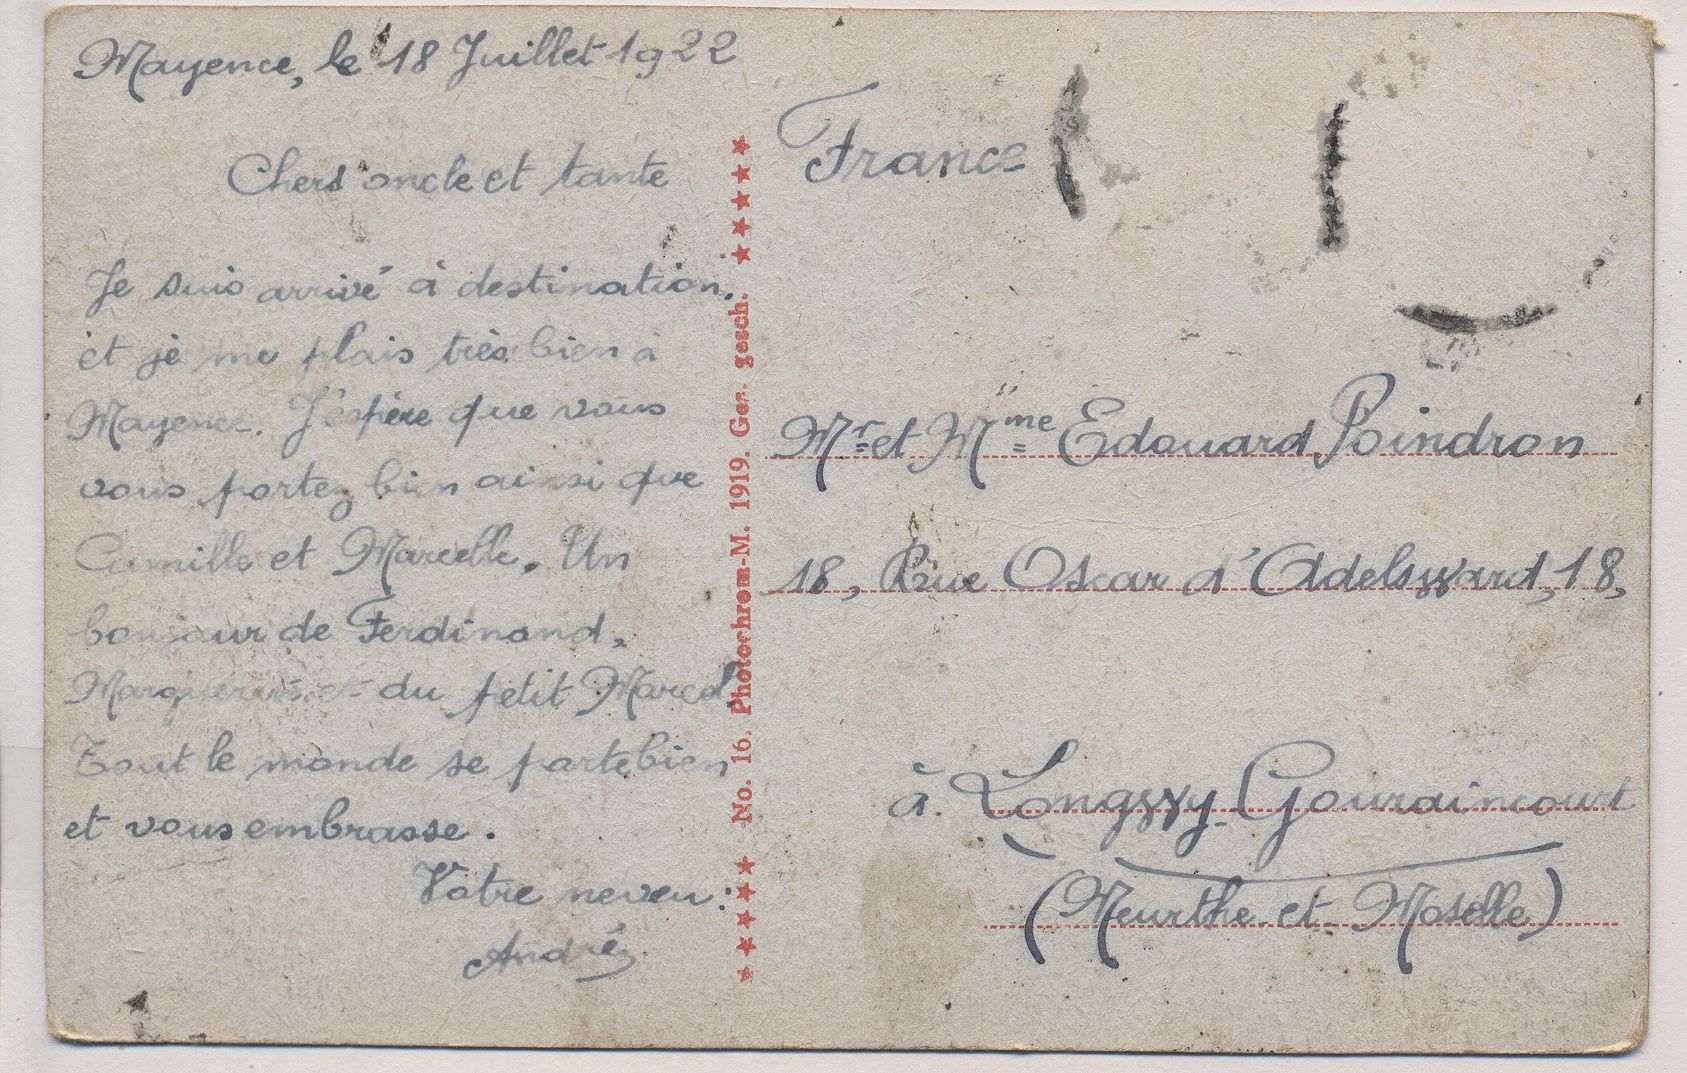 Mayence, le 18 Juillet 1922
Chers oncle et tante
Je suis arrivé à destination.
et je me plais très bien à
Mayence. J'éspère que vous
vous portez bien ainsi que
Camille et Marcelle. Un
bonjour de Ferdinand,
Marguerite et du petit Marcel.
Tout le monde se porte bien
et vous embrasse.
Votre neveu:
André
No. 16. Photochrom-M. 1919. Ges. gesch.
France
Mr et Mme Edouard Poindron
18, Rue Oscar d'Adelsward, 18,
à Longwy-Gouraincourt
(Meurthe et Moselle)